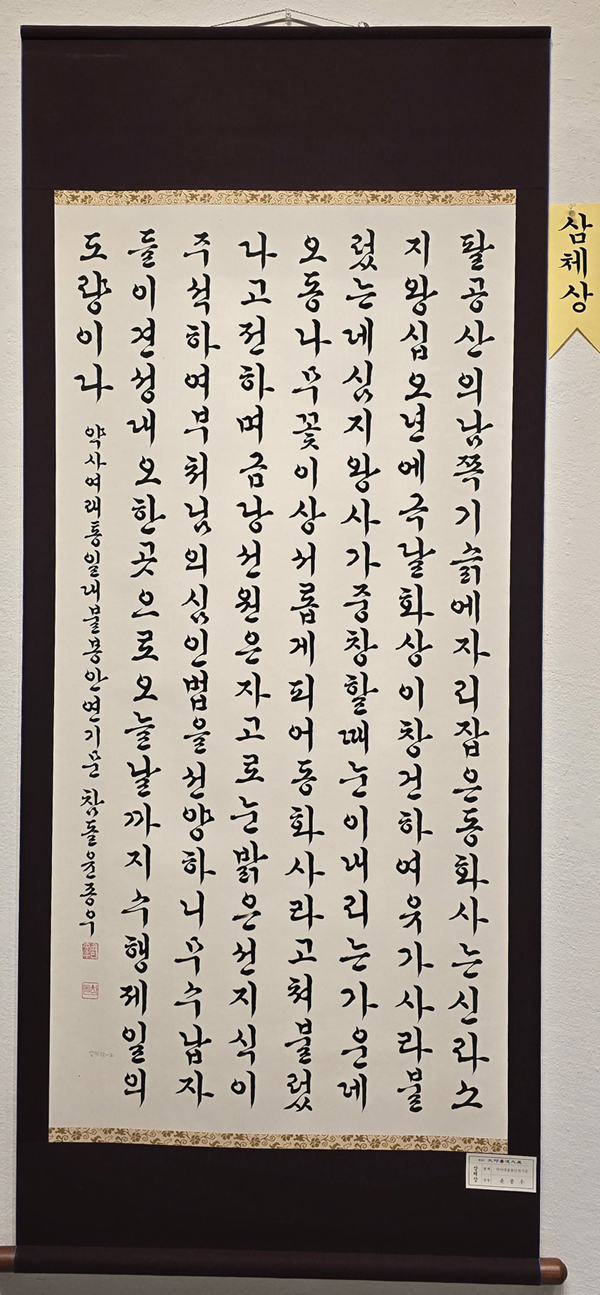 팔공산의남쪽기슭에자리잡은동화사는신라소
지왕십오년에극달화상이창건하여유가사라불
렀는데심지왕사가중창할때눈이내리는가운데
오동나무꽃이상서롭게피어동화사라고쳐불렀
다고전하며금당선원은자고로눈밝은선지식이
주석하여부처님의심인법을선양하니무수납자
들이견성내오한곳으로오늘날까지수행제일의
도량이다
약사여래통일대불봉안연기문 참돌윤종우
삼체상
삼체상
윤종우